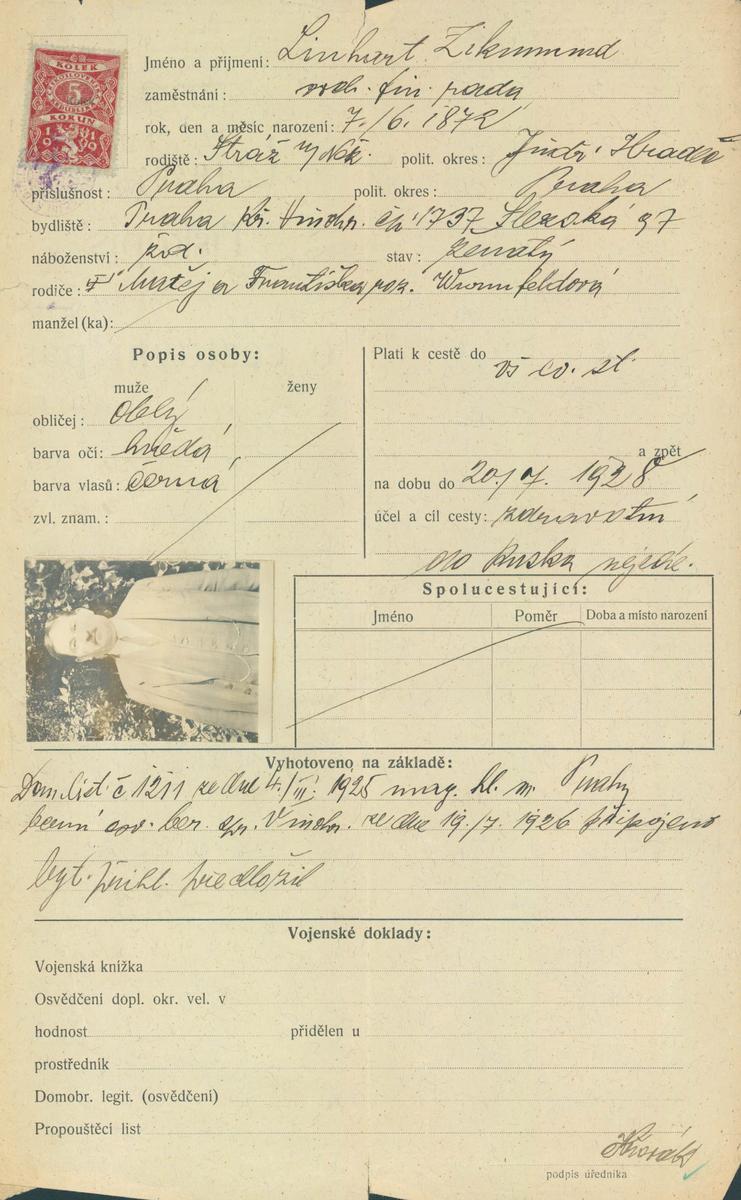 KOLEK
5
KORUN
1919
Jméno a příjmení: Linhart Zikmund
zaměstnání: vrch. fin. rada
rok, den a měsíc narození: 7./6. 1872
rodiště: Stráž n/Než. polit. okres: Jindř. Hradec
příslušnost: Praha polit. okres: Praha
bydliště: Praha Kr. Vinohr. čp. 1737 Slezská 97
náboženství: stav: ženatý
rodiče: Matěj a Františka roz.
manžel (ka):
Popis osoby:
muže ženy
obličej: oblý
barva očí: hnědá
barva vlasů: černá
zvl. znam.:
Platí k cestě do vš. ev. st.
a zpět
na dobu do 20./7. 1928
účel a cíl cesty: zdravotní
do Ruska nejede.
Spolucestující:
Jméno Poměr Doba a místo narození
Vyhotoveno na základě:
Dom. list č 1211 ze dne 4./III. 1925 mag. hl. m. Prahy
ber. spr. Vinohr. ze dne 19./7. 1926 připojeno
byt. přihl. předložil
Vojenské doklady:
Vojenská knížka
Osvědčení dopl. okr. vel. v
hodnost přidělen u
prostředník
Domobr. legit. (osvědčení)
Propouštěcí list
podpis úředníka